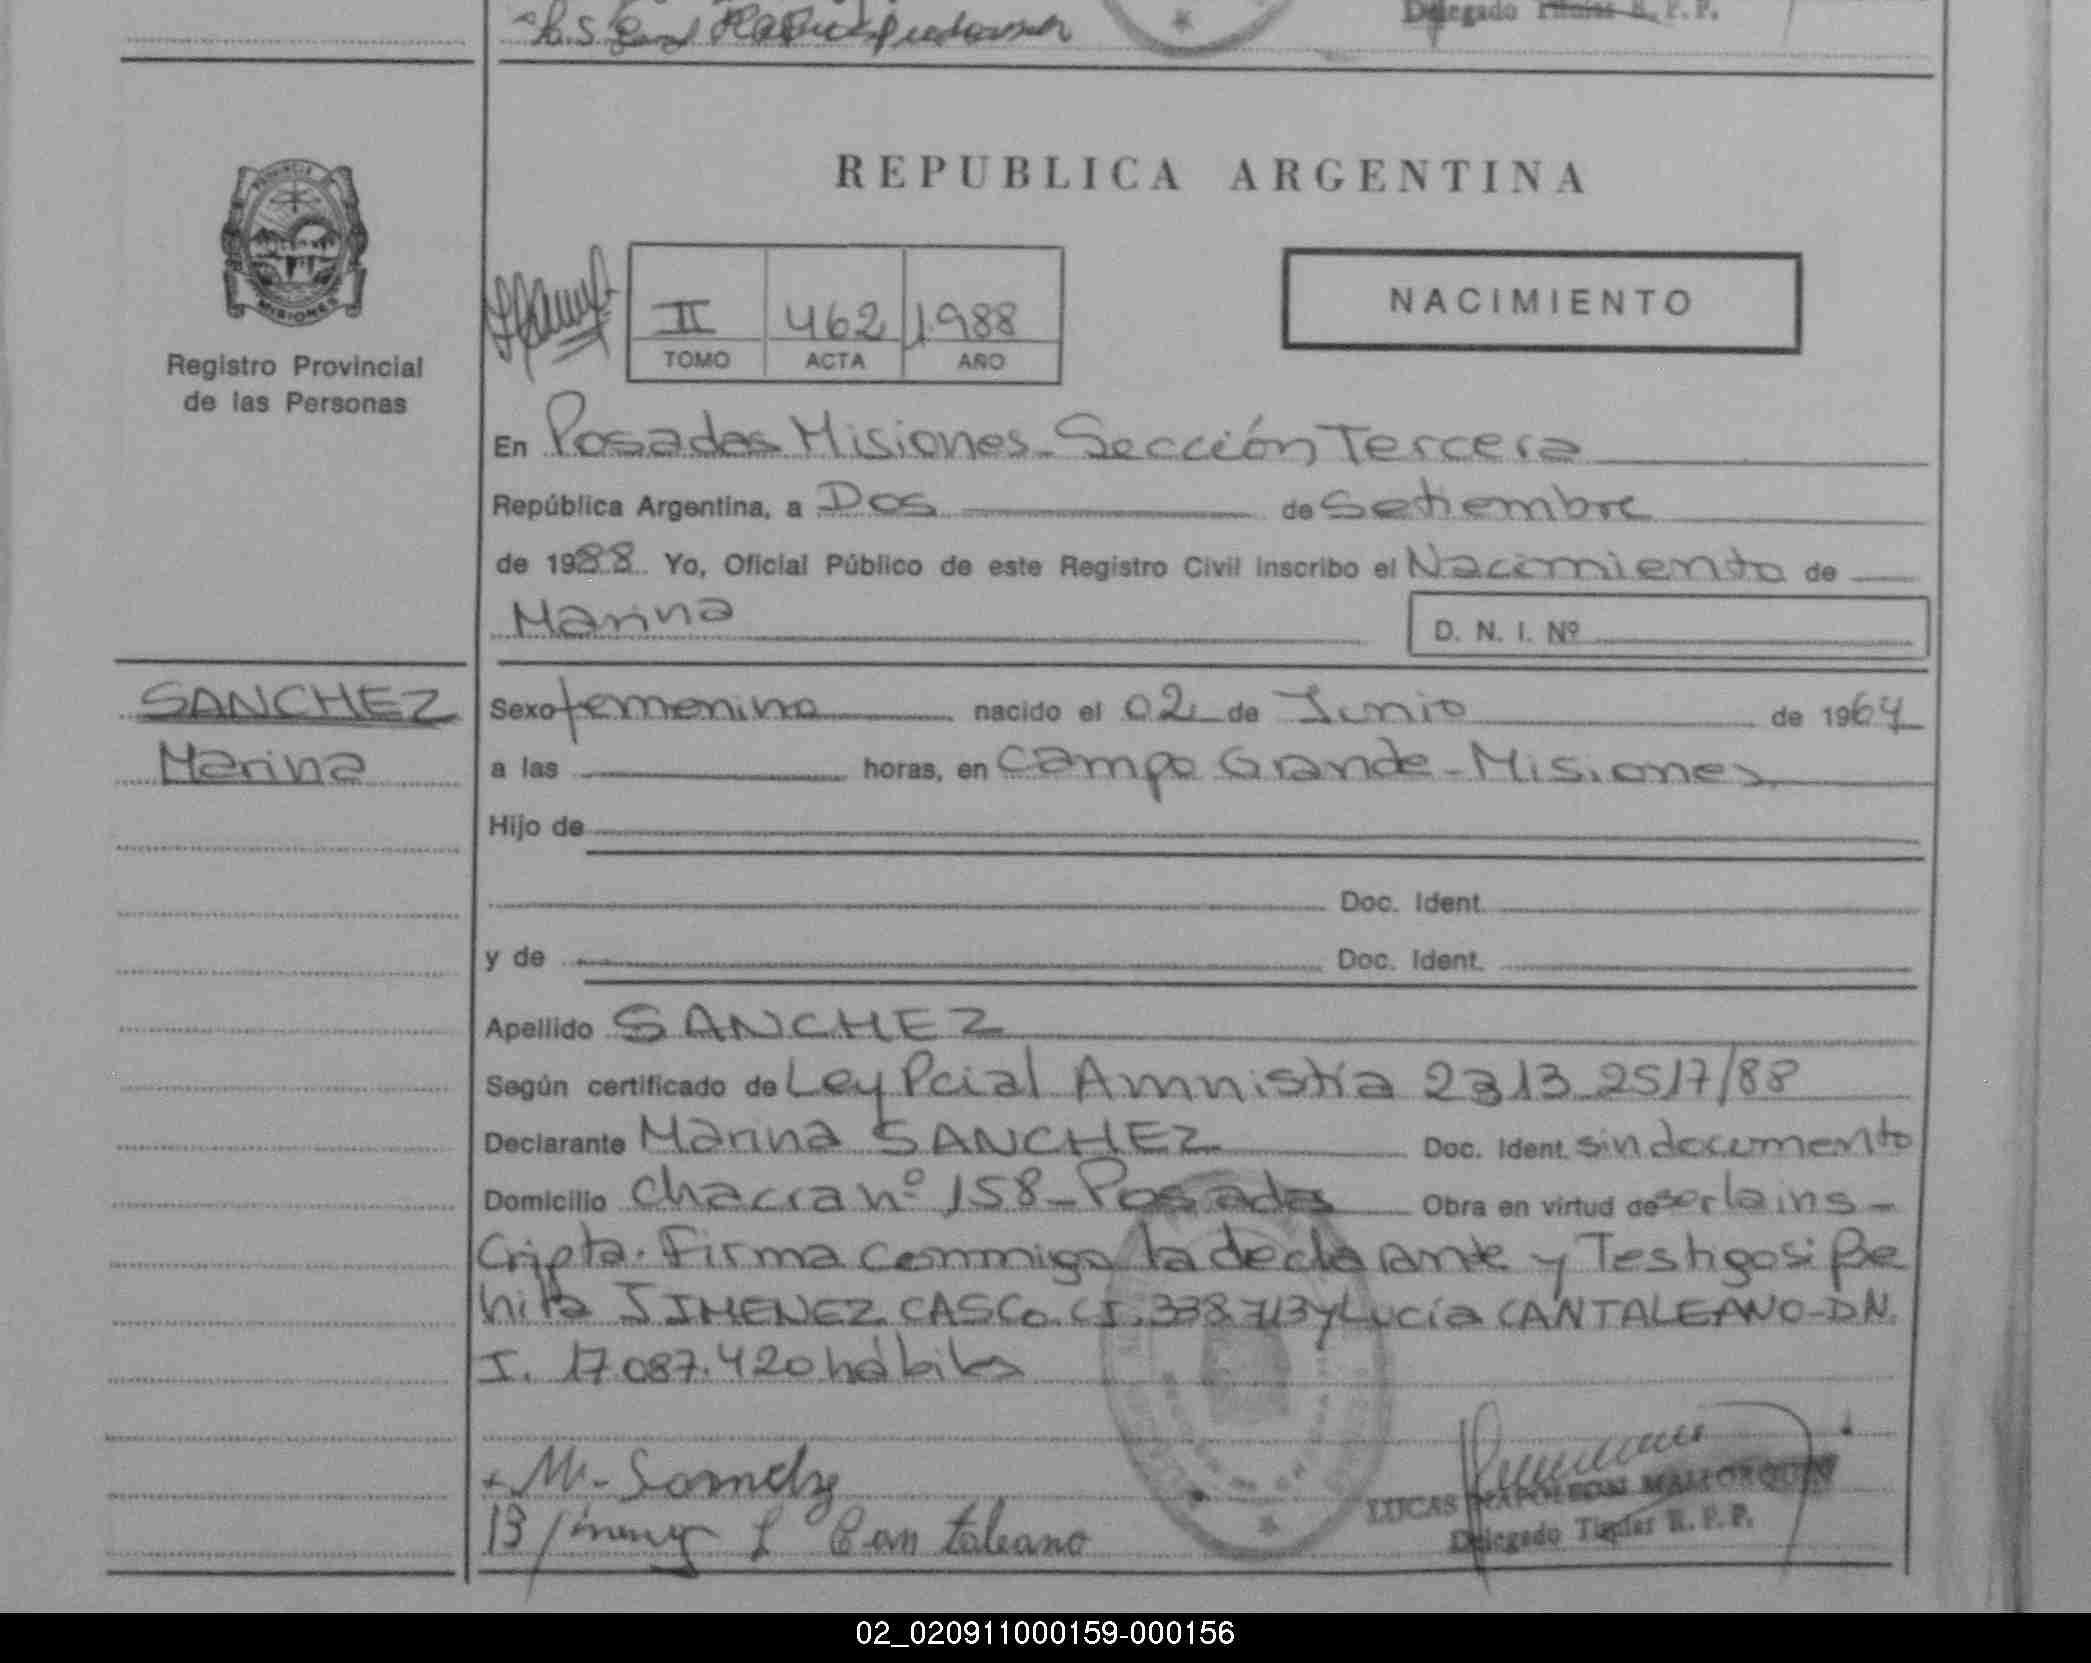 Delegado Titular R. P. P.
REPUBLICA ARGENTINA
PROVINCIA DE
MISIONES
Registro Provincial
de las Personas
II 462 1988
TOMO ACTA AÑO
NACIMIENTO
En Posadas Misiones - Sección Tercera
República Argentina, a Dos de Setiembre
de 1988 Yo, Oficial Público de este Registro Civil inscribo el Nacimiento de
Marina
D. N. I. Nº
SANCHEZ
Marina
Sexo femenino nacido el 02 de Junio de 1964
a las horas, en Campo Grande - Misiones
Hijo de
Doc. Ident.
y de Doc. Ident.
Apellido SANCHEZ
Según certificado de Ley Pcial Amnistía 2313 2517/88
Declarante Marina SANCHEZ Doc. Ident. sin documento
Domicilio Chacra nº 158 - Posadas Obra en virtud de ser la ins -
cripta. Firma conmigo la declarante y Testigos: Be
nita JIMENEZ CASCO. C.I. 338.713 y Lucía CANTALEANO - D.N.
I. 17.087.420 hábiles
M. Sanchez
B Jimenez L Cantaleano
LUCAS NAPOLEON MALLORQUIN
Delegado Titular R. P. P.
02_020911000159-000156